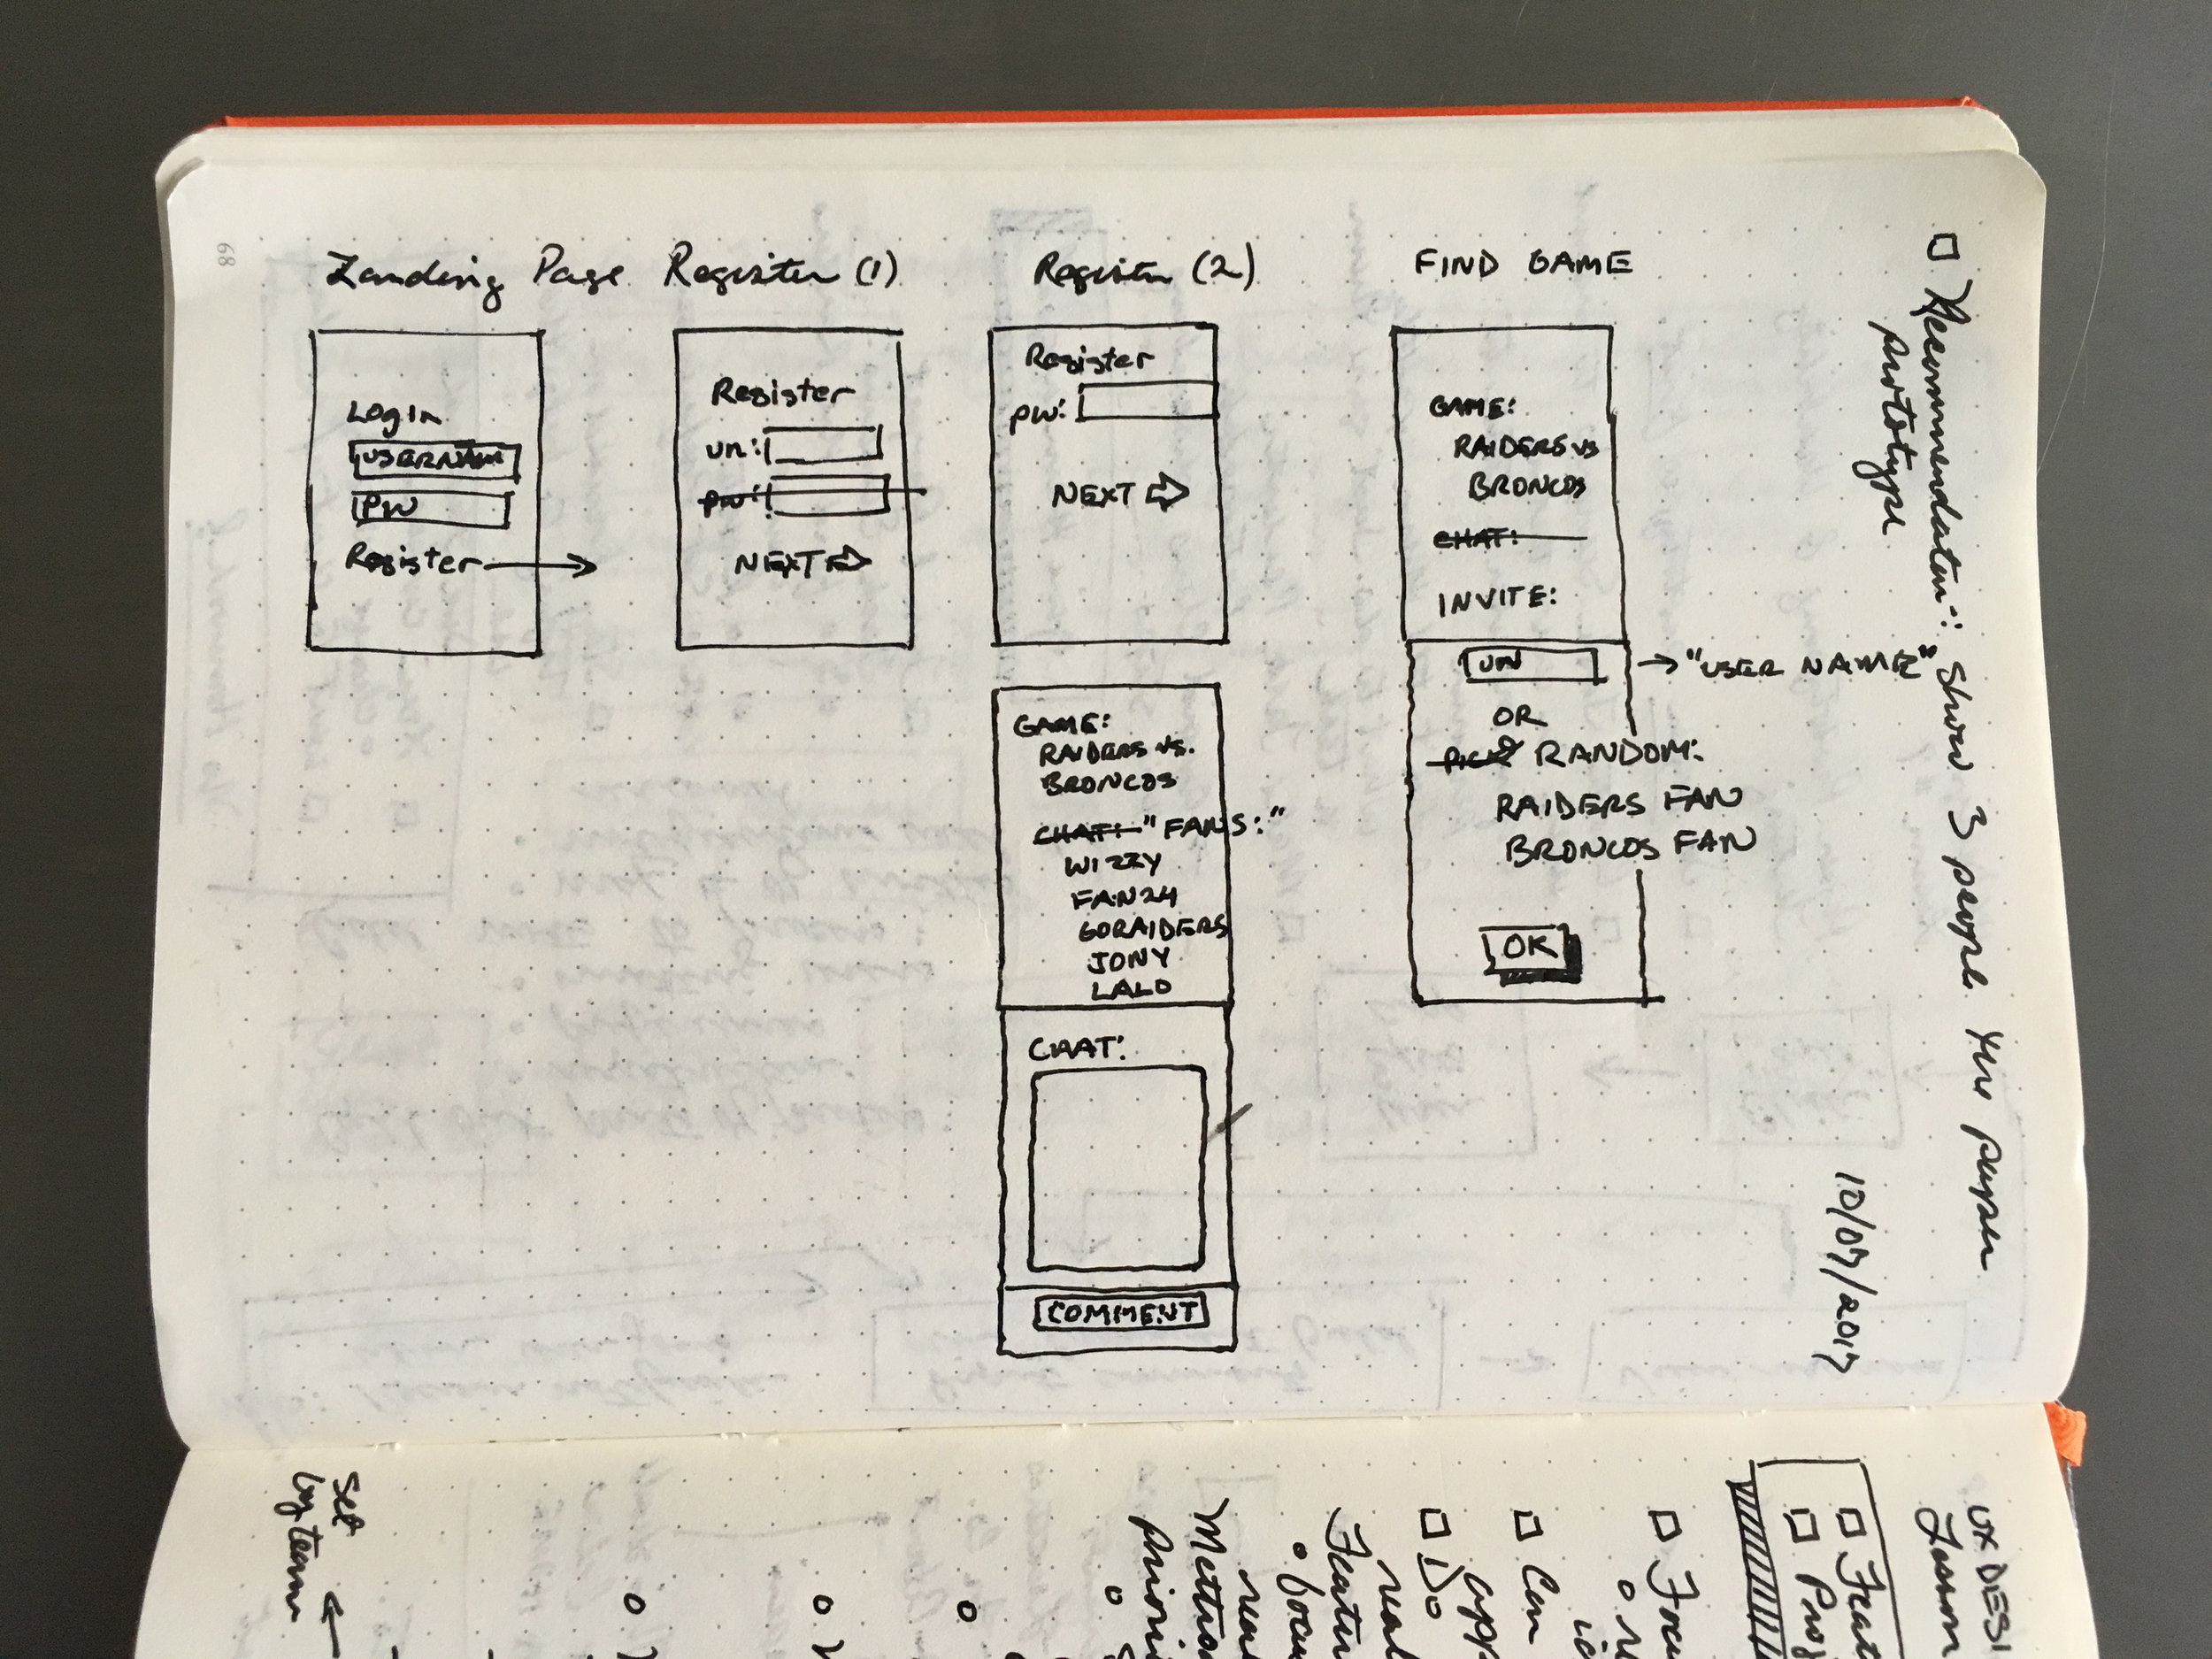 68
Landing Page
Login
USERNAM
PW
Register
Register (1)
Register
un:
pw:
NEXT
Register (2)
Register
pw:
NEXT
FIND GAME
GAME:
RAIDERS VS
BRONCOS
CHAT:
INVITE:
UN
"USER NAME"
OR
PICK RANDOM:
RAIDERS FAN
BRONCOS FAN
OK
GAME:
RAIDERS VS.
BRONCOS
CHAT: "FANS:"
WIZZY
FAN24
GORAIDERS
JONY
LALO
CHAT:
COMMENT
Show 3 people the paper
prototype
10/07/2017
UX DESI
Feat
Proj
Focu
Can
Do
app
real
Featur
focu
Priori
Set
by team